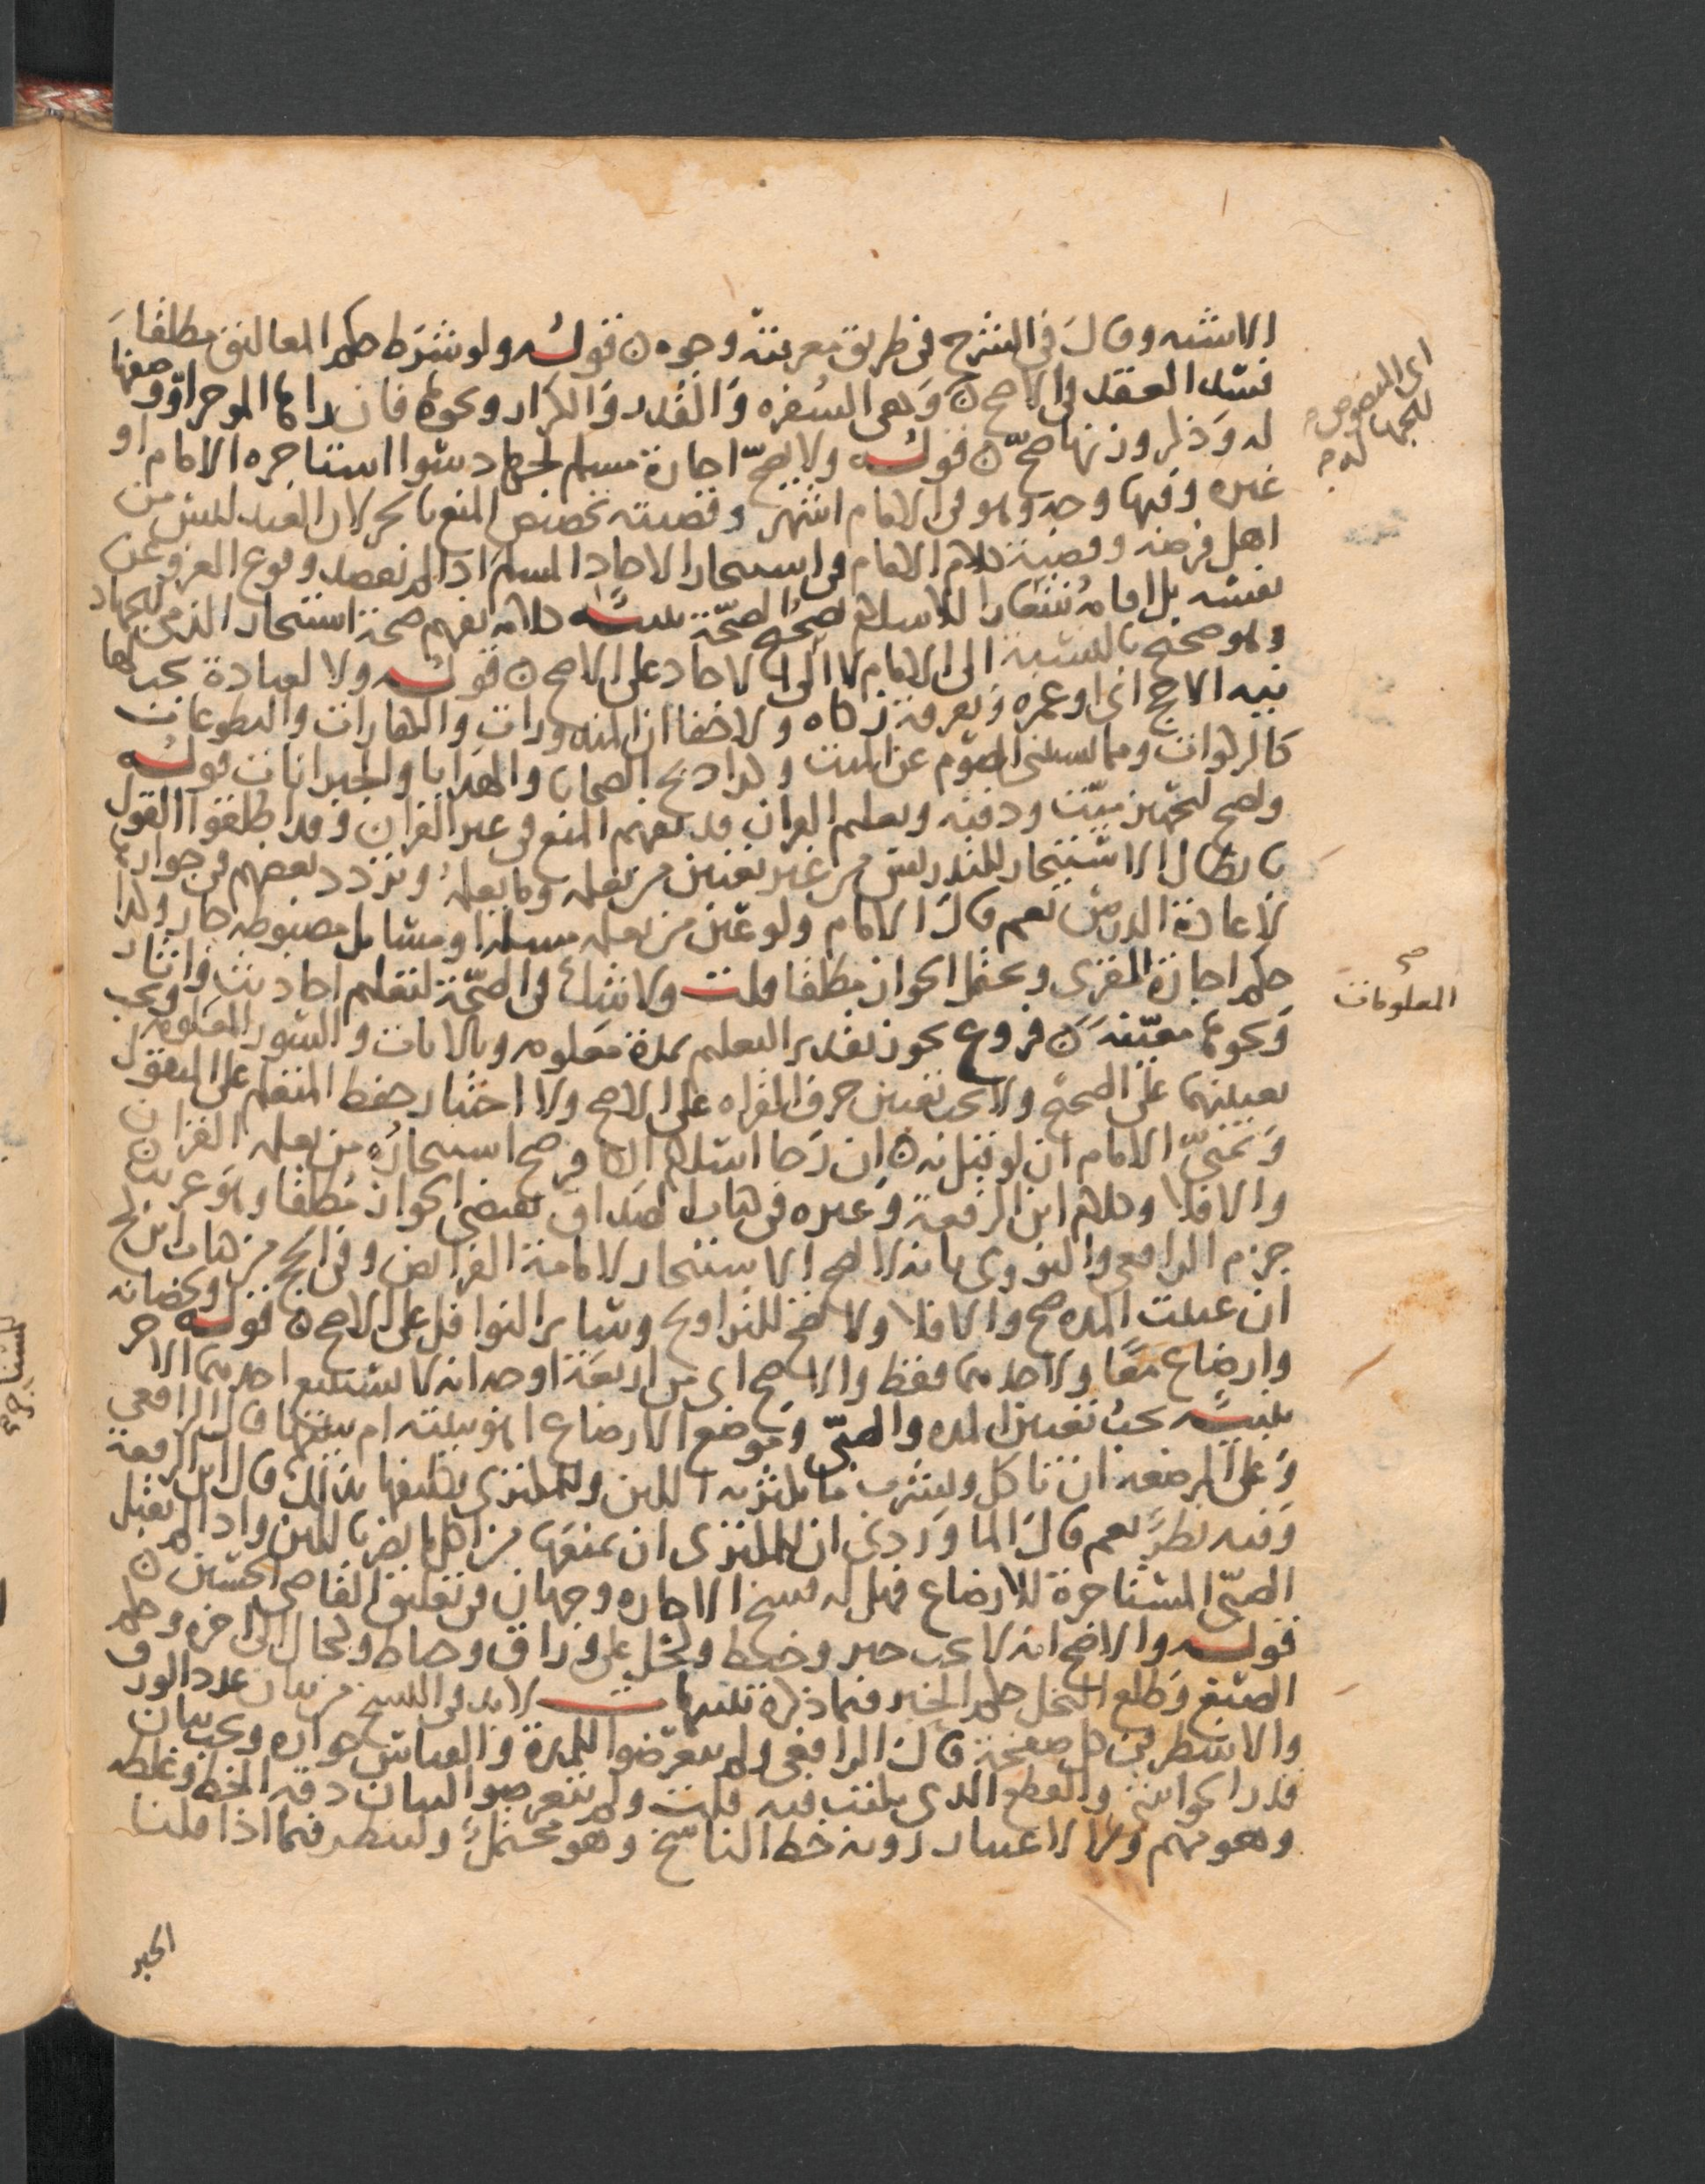 الاشبه وقال في الشرح في طريق معرفته وجوه ۞ قوله ولو شرط حمل المعاليق مطلقا
فسد العقد في الاصح ۞ وهي السفرة والقدر والكراز ونحوها فان راها الموجر او وصفها
له وذكر وزنها صح ۞ قوله ولا يصح اجارة مسلم لجهاد سوا استاجره الامام او
غيره وفيها وجه وهو في الامام اشهر وقضيته تخصيص المنع بالحر لان العبد ليس من
اهل فرضه وقضية كلام الامام في استيجار الاحاد المسلم اذا لم يقصد وقوع الغزو عن
نفسه بل اقامة شعار الاسلام الصحة تنبيه كلامه يفهم صحة استيجار الذمي للجهاد
وهو صحيح بالنسبة الى الامام لا الى الاحاد على الاصح ۞ قوله ولا لعبادة يجب لها
نية الا حج اي او عمرة وتفرقة زكاة ولا خفا ان المنذورات والكفارات والتطوعات
كالزكوات ومما يستثنى الصوم عن الميت وكذا ذبح الضحايا والهدايا والجبرانات قوله
ويصح لتجهيز ميت ودفنه وتعليم القران قد يفهم المنع في غير القران وقد اطلقوا القول
بابطال الاستيجار للتدريس من غير تعيين من يعلمه وما يعلمه وتردد بعضهم في جوازه
لاعادة الدرس نعم قال الامام ولو عين من يعلمه مسلة او مسايل مضبوطة جاز وكذا
حكم اجارة المقرى ويحتمل الجواز مطلقا قلت ولا شك في الصحة لتعليم احاديث واثار
ونحوها معينة ۞ فروع يجوز تقدير التعليم بمدة معلومة وبالايات والسور المعلومة ويجب
تعيينها على الصحيح ولا يجب تعيين حرف القراة على الاصح ولا اختبار حفظ المتعلم على المنقول
وتمنى الامام ان لو قيل به ۞ ان رجا اسلام الكافر صح استيجاره من يعلمه القران
والا فلا وكلام ابن الرفعة وغيره في باب الصداق يقتضي الجواز مطلقا وهو غريب ۞
جزم الرافعي والنووي بانه لا يصح الاستيجار لامامة الفرايض وفي الحج من باب ابن كج
ان عينت المدة صح والا فلا ولا يصح للتراويح وساير النوافل على الاصح ۞ قوله ولحضانة
وارضاع معا ولاحدهما فقط والاصح اي من اربعة اوجه انه لا يستتبع احدهما الاخر
تنبيه يجب تعيين المدة والصبي وموضع الارضاع اهو بيته ام بيتها قال الرافعي
وعلى المرضعة ان تاكل وتشرب ما يكثر به اللبن وللمكتري تكليفها بذلك قال ابن الرفعة
وفيه نظر نعم قال الماوردي ان للمكتري ان يمنعها من اكل ما يضر باللبن واذا لم يقبل
الصبي المستاجرة للارضاع فهل له فسخ الاجارة وجهان في تعليق القاضي الحسين ۞
قوله والاصح انه لا يجب حبر وخيط وكحل على وراق وخياط وكحال الى اخره وحكم
الصبغ وطلع النخل حكم الحبر فيما ذكره تنبيهات لا بد في النسخ من بيان عدد الورق
والاسطر في كل صفحة قال الرافعي ولم يتعرضوا للمدة والقياس جوازه ويجب بيان
قدر الحواشي والقطع الذي يكتب فيه قلت ولم يتعرضوا لبيان دقة الخط وغلظه
وهو مهم ولا لاعتبار روية خط الناسخ وهو محتمل ولينظر فيما اذا قلنا
الحبر
اي المنصوص
للجهاد
صح
المعلومات